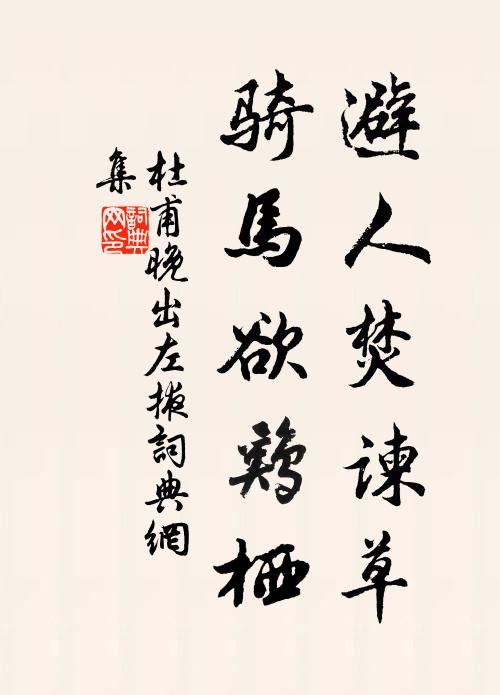 避人焚諫草
騎馬欲鷄栖
杜甫晚出左掖詞典網
集
詞典
网印